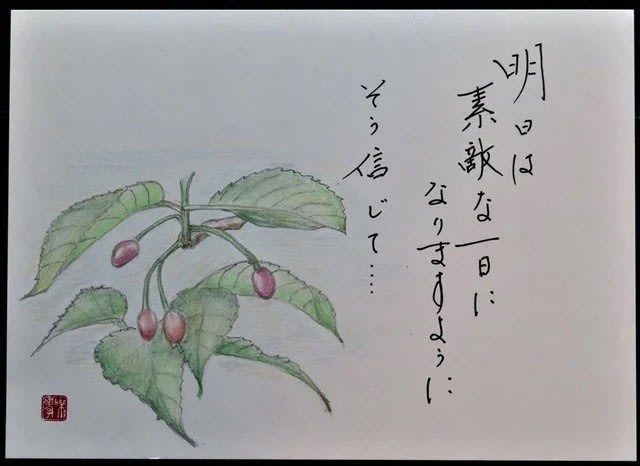 明日は
素敵な一日に
なりますように
そう信じて....